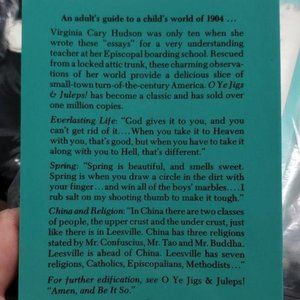 An adult's guide to a child's world of 1904 ...
Virginia Cary Hudson was only ten when she
wrote these "essays" for a very understanding
teacher at her Episcopal boarding school. Rescued
from a locked attic trunk, these charming observa-
tions of her world provide a delicious slice of
small-town turn-of-the-century America. O Ye Jigs
& Juleps! has become a classic and has sold over
one million copies.
Everlasting Life: "God gives it to you, and you
can't get rid of it....When you take it to Heaven
with you, that's good, but when you have to take it
along with you to Hell, that's different."
Spring: "Spring is beautiful, and smells sweet.
Spring is when you draw a circle in the dirt with
your finger...and win all of the boys' marbles....I
rub salt on my shooting thumb to make it tough."
China and Religion: "In China there are two classes
of people, the upper crust and the under crust, just
like there is in Leesville. China has three religions
stated by Mr. Confuscius, Mr. Tao and Mr. Buddha.
Leesville is ahead of China. Leesville has seven
religions, Catholics, Episcopalians, Methodists..."
For further edification, see O Ye Jigs & Juleps!
"Amen, and Be It So."